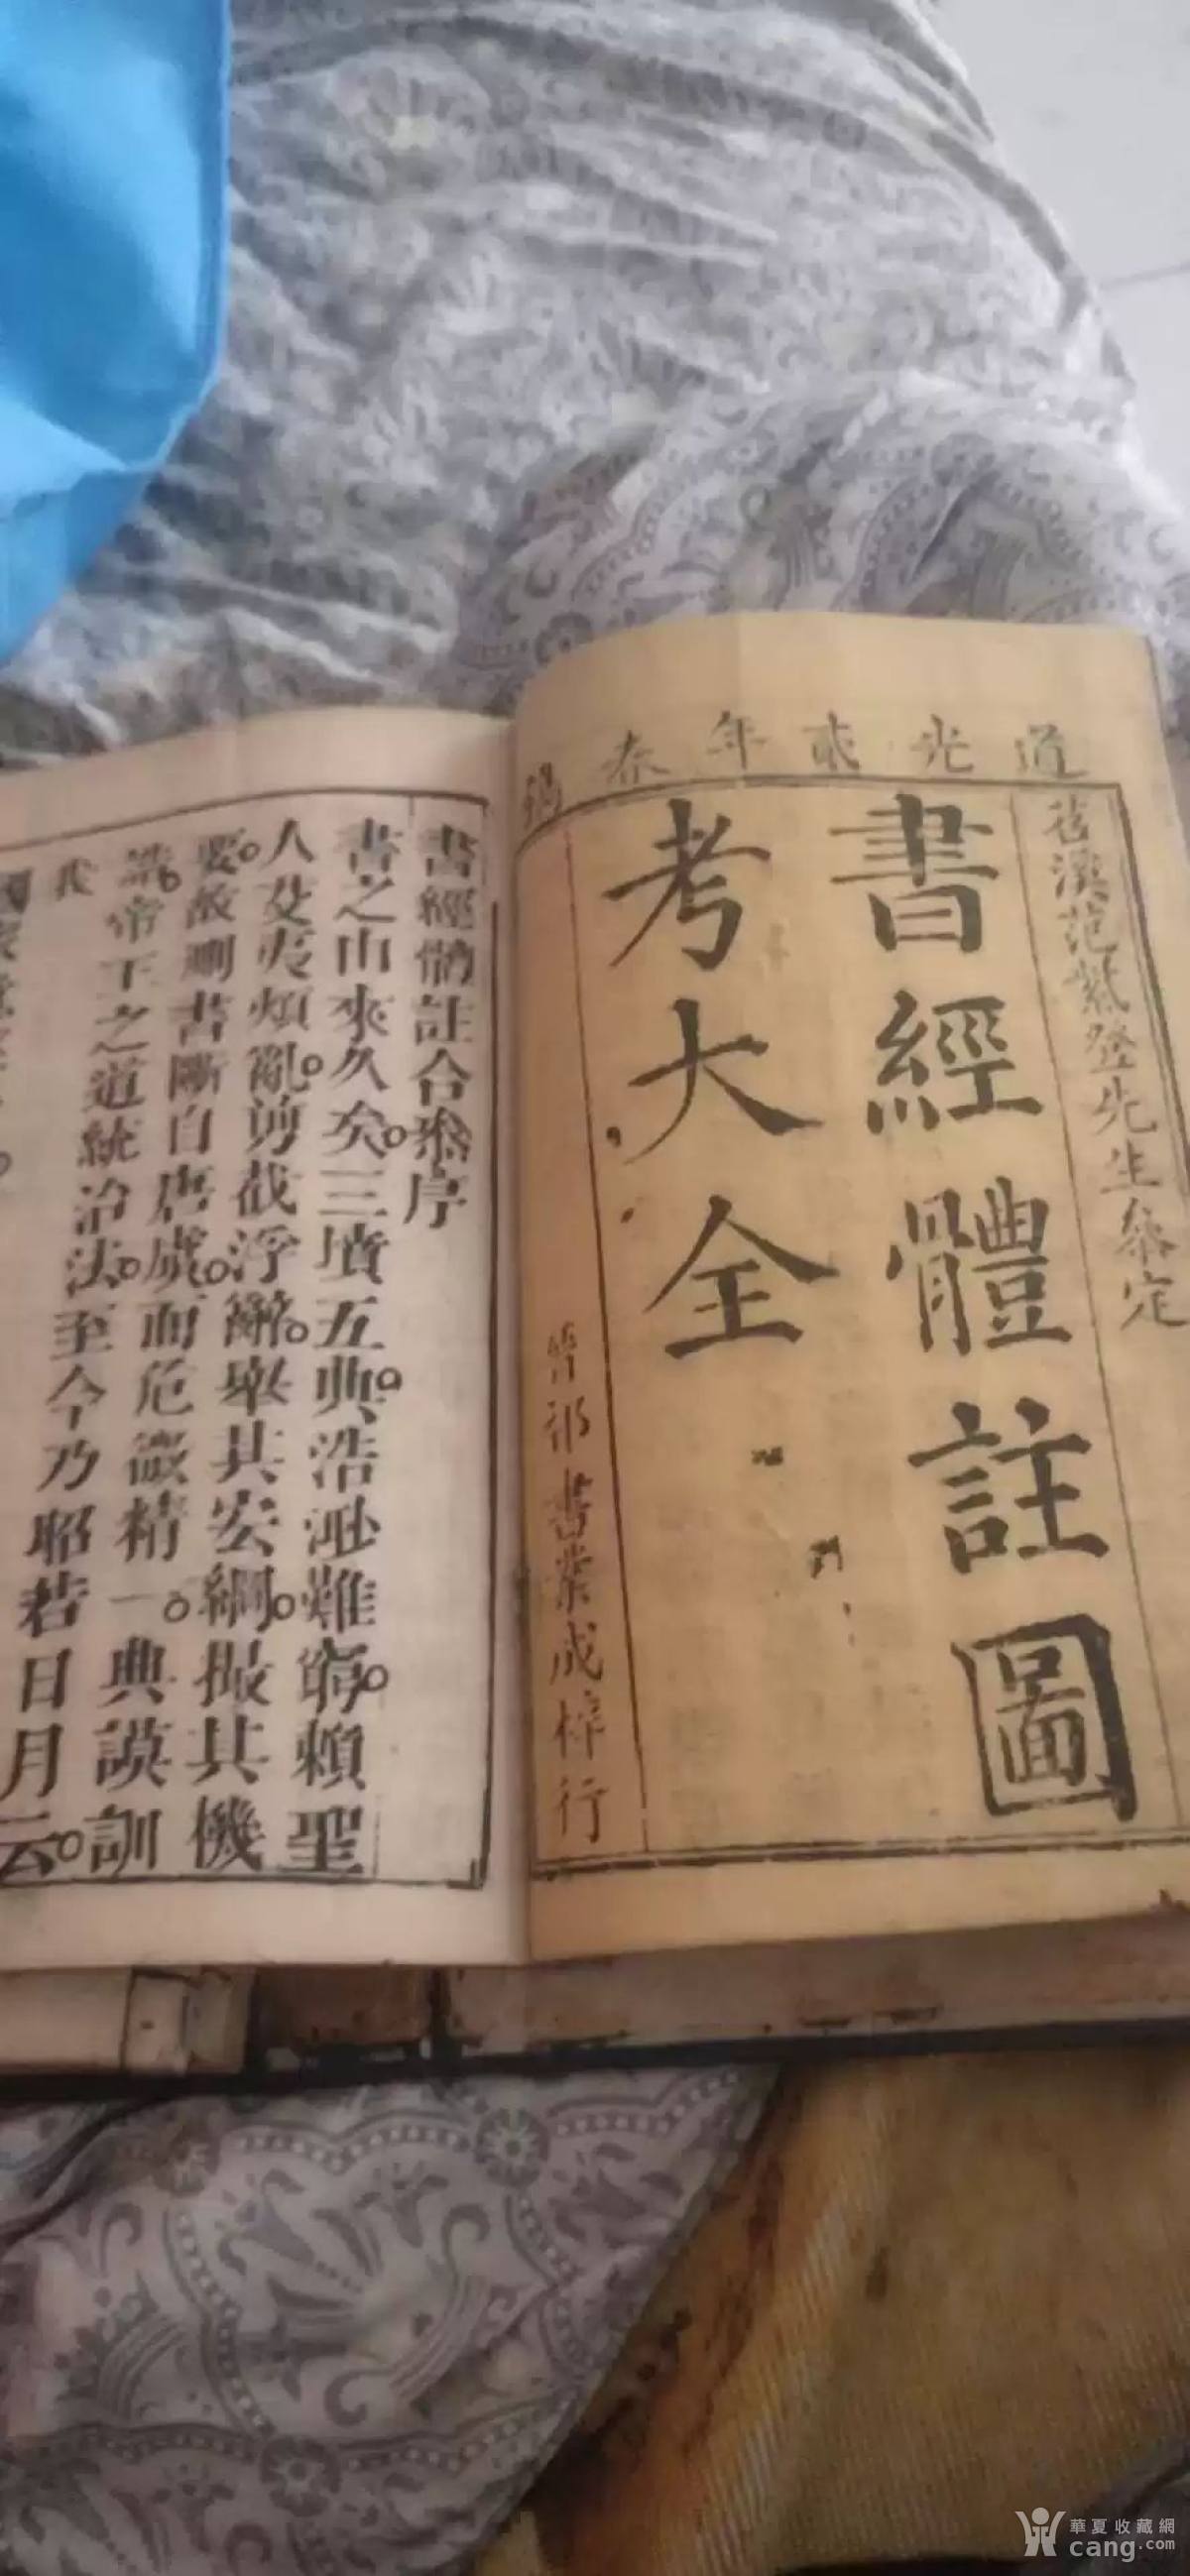 道光貳年春鐫
苕溪范紫登先生叅定
書經體註圖
考大全
晉祁書業成梓行
書經體註合叅序
書之由來久矣三墳五典浩渺難窮賴聖
人芟夷煩亂剪截浮辭舉其宏綱撮其機
要故刪書斷自唐虞而危微精一典謨訓
誥帝王之道統治法至今乃昭若日月云
我
國家
華夏收藏網
cang.com